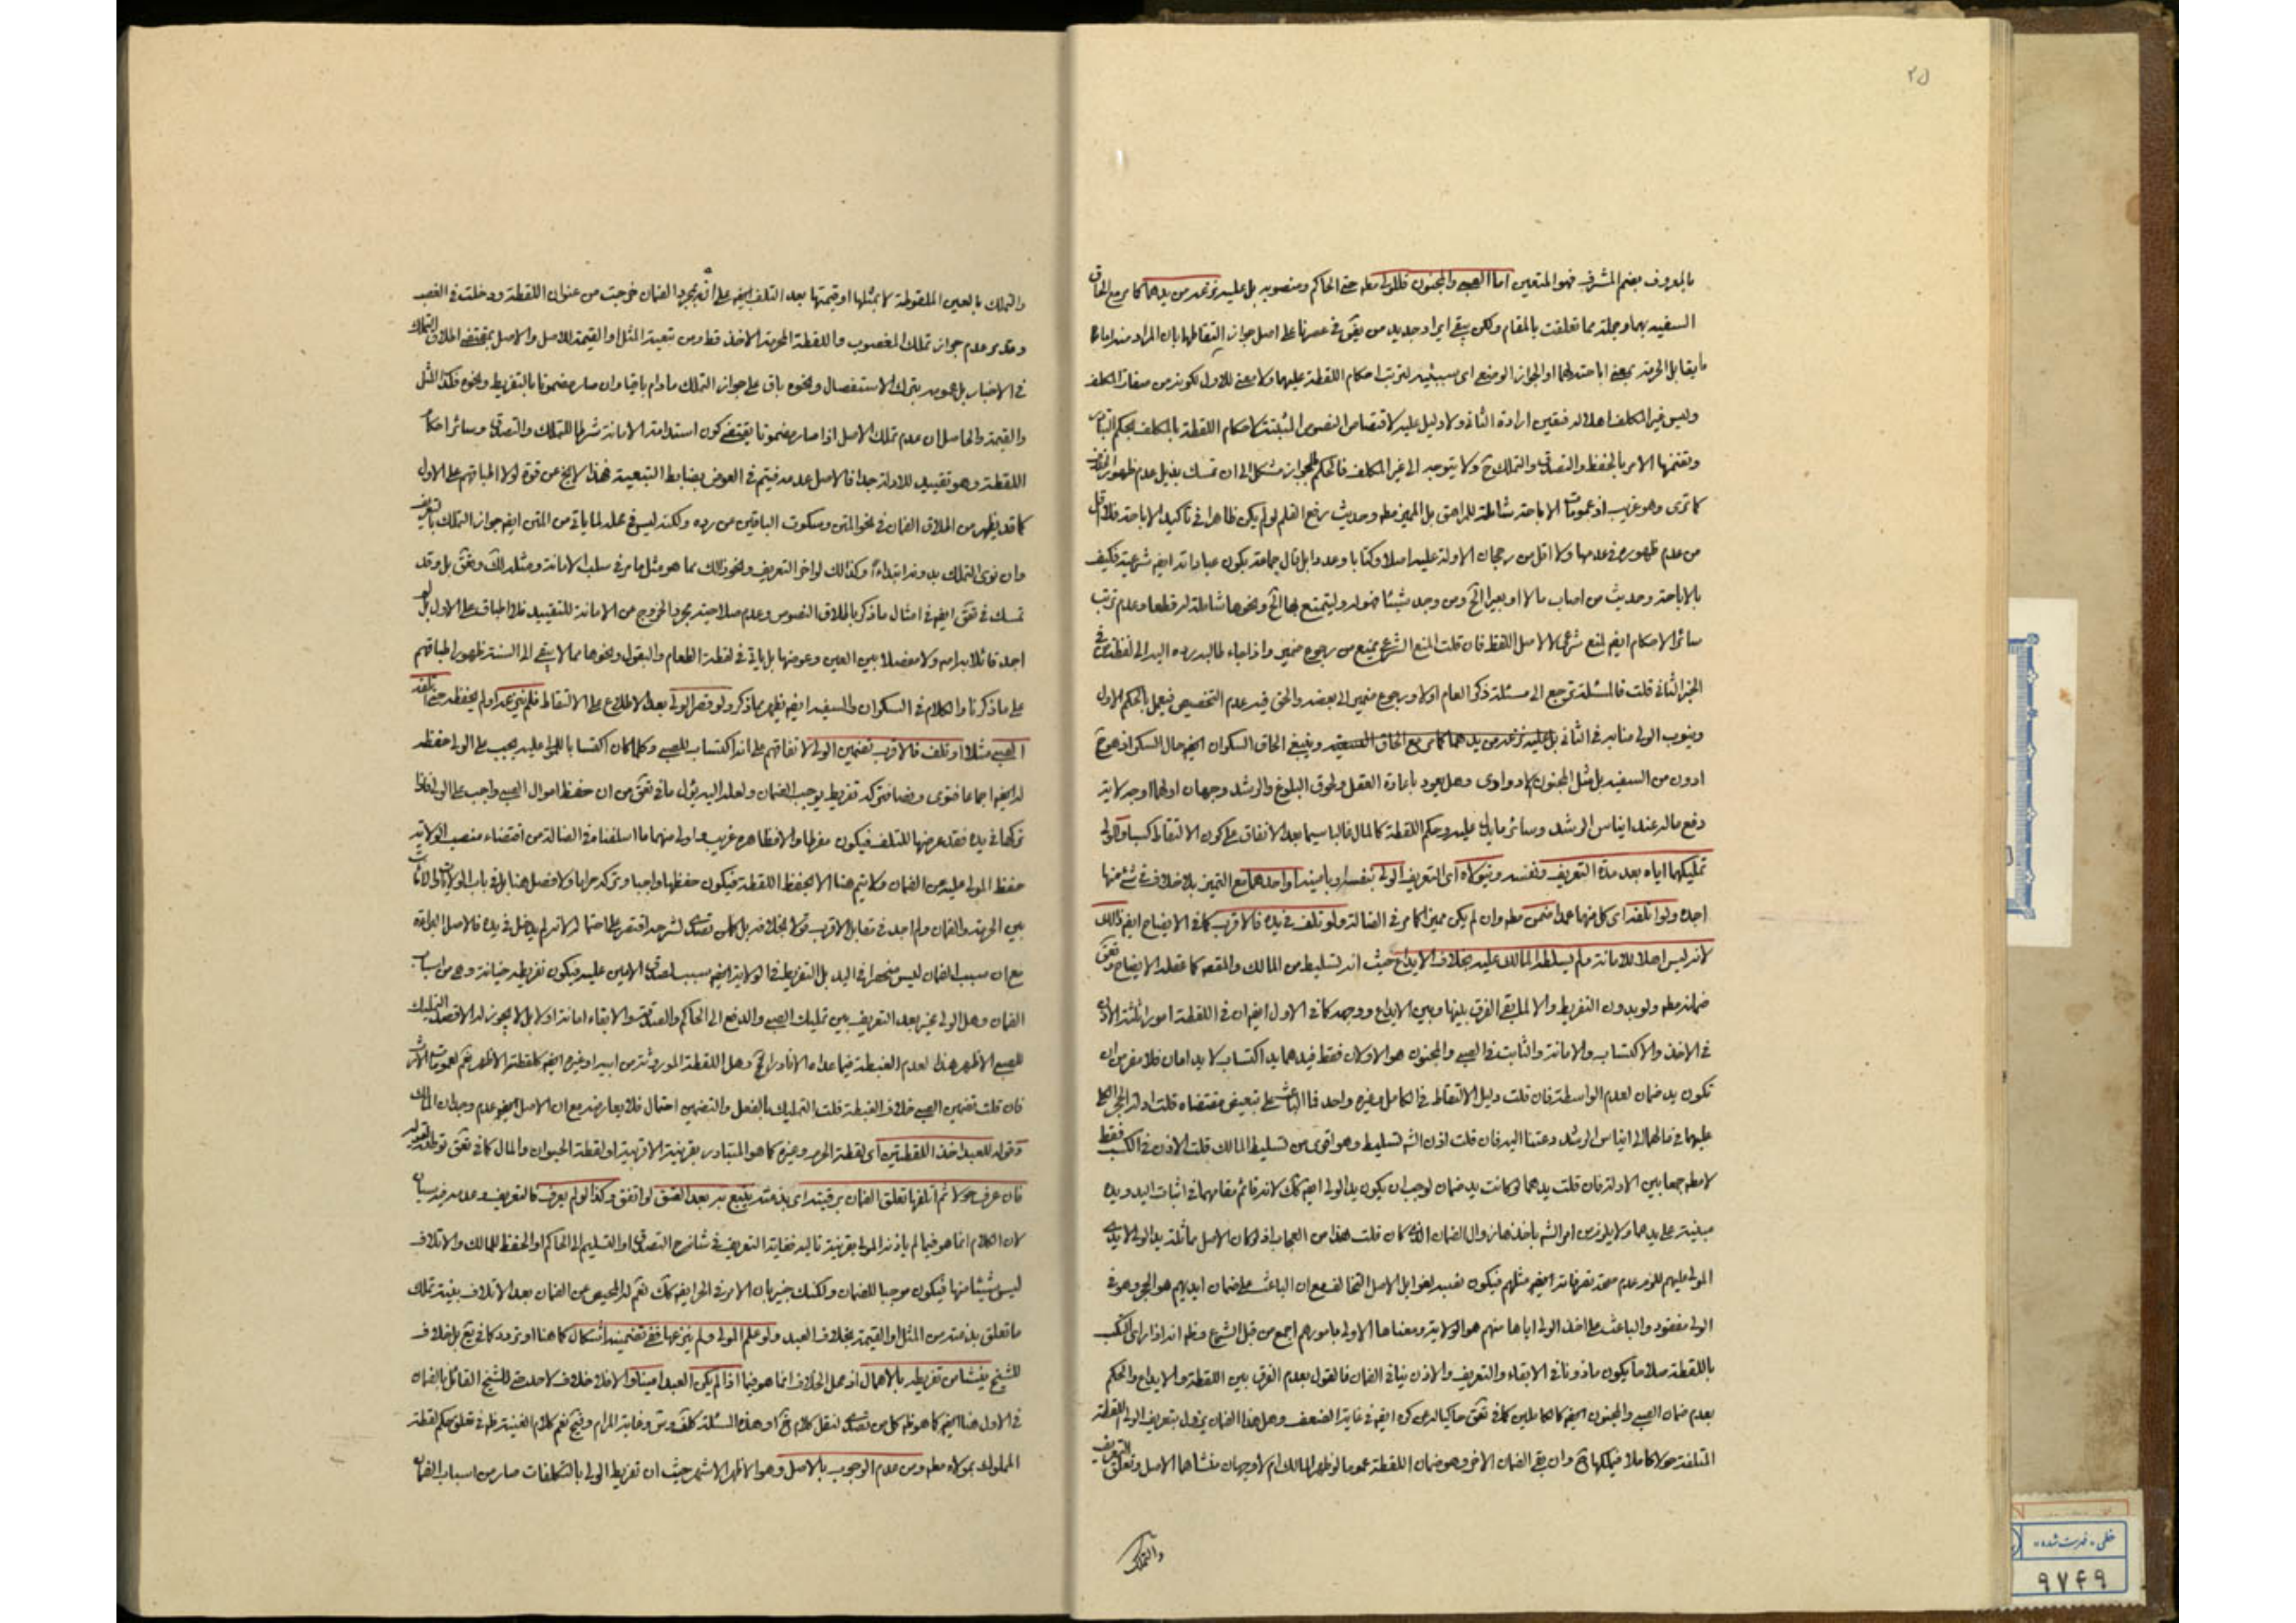 ٢٥
بالمعروف بضم المشرف فهو المتعين اما الصبى والمجنون فللولى مطه حتى الحاكم ومنصوبه بل عليه نزعه من يدهما كما مر مع الحاق
السفيه بهما وجملة مما تعلقت بالمقام ولكن بقى ايراد جديد من فى عصرنا على اصل جواز التقاطهما بان المراد منه اما
ما يقابل الحرمة بمعنى اباحته لهما او الجواز الوضعى اى سببيته لترتب احكام اللقطة عليهما ولا معنى للاول لكونه من صفات المكلف
وليس غير المكلف اهلا له فتعين ارادة الثانى ولا دليل عليه لاختصاص النصوص المثبتة لاحكام اللقطة بالمكلف بحكم التبادر
وتضمنها الامر بالحفظ والتصدق والتملك ولا يتوجه الى غير المكلف فالحكم بالجواز مشكل الى ان تمسك بذيل عدم ظهور
كما ترى وهو غريب اذ عمومات الاباحة شاملة للمراهق بل المميز مطه وحديث رفع القلم لو لم يكن ظاهرا فى تأكيد الاباحة فلا اقل
من عدم ظهوره فى عدمها ولا اقل من رجحان الادلة عليه اصلا وكتابا وعددا بل قال جماعة بكون عباداته ايضا شرعية فكيف
بالاباحة وحديث من اصاب مالا او بعيرا الخ ومن وجد شيئا فهو له وليتمتع بها الخ ونحوها شاملة له قطعا وعدم ترتب
سائر الاحكام ايضا لمنع شرعى لا لاصل اللقط فان قلت المنع الشرعى يمنع من رجوع ضمير واذا جاء طالبه رده اليه الى لفظة من فى
الخبر الثانى قلت فالمسئلة ترجع الى مسئلة ذكر العام اولا ورجوع ضمير الى بعضه والحق فيه عدم التخصيص فيعمل بالحكم الاول
وينوب الولى منابه فى الثانى بل عليه نزعه من يدهما كما مر مع الحاق السفيه وينبغى الحاق السكران ايضا حال السكر اذ هو
ادون من السفيه بل مثل المجنون الادوارى وهل يعود باعادة العقل ولحوق البلوغ والرشد وجهان اولهما اوجه لاية
دفع ماله عند ايناس الرشد وسائر ما دل عليه وحكم اللقطة كالمال غالبا سيما بعد الاتفاق على كون الالتقاط كسبا وللولى
تمليكهما اياه بعد مدة التعريف ونفسه ويتولاه اى التعريف الولى بنفسه او بامينه او احدهما مع التميز بلا خلاف فى شئ منها
اجده ولو اتلفه اى كل منهما عمدا ضمن مطه وان لم يكن مميزا كما مر فى الضالة ولو تلف فى يده فالاقرب كما فى الايضاح ايضا ذلك
لانه ليس اهلا للامانة ولم يسلطه المالك عليه بخلاف الايداع حيث انه تسليط من المالك والمقصد كما عقله الايضاح
ضمانه مطه ولو بدون التفريط والا لما بقى الفرق بينها وبين الايداع ووجهه كما فى الاول ايضا ان فى اللقطة امورا ثلثة الاذن
فى الاخذ والاكتساب والامانة والثابت فى الصبى والمجنون هو الاولان فقط فيدهما يد اكتساب لا يد امان فلا مفر من ان
تكون يد ضمان لعدم الواسطة فان قلت دليل الالتقاط فى الكامل وغيره واحد فما الباعث على تبعيض مقتضاه قلت ادلة الحجر
عليهما فى مالهما الى ايناس الرشد دعتنا اليه فان قلت اذن الشه تسليط وهو اقوى من تسليط المالك قلت الاذن فى الكسب فقط
لا مطه جمعا بين الادلة فان قلت يدهما لو كانت يد ضمان لوجب ان يكون يد الولى ايضا كك لانه قائم مقامهما فى اثبات اليد ويده
مبنية على يدهما ولا يلزم من امر الشه باخذها زوال الضمان الذى كان قلت هذا من العجاب اذ لو كان الاصل مماثلة يد الولى لايدى
المولى عليهم للزم عدم صحة تصرفاته ايضا مثلهم فيكون نصبه لغوا بل الاصل التخالف مع ان الباعث على ضمان ايديهم هو الحجر وهو فى
الولى مفقود والباعث على اخذ الولى اياها منهم هو الولاية ومعناها الاولى بامورهم اجمع من قبل الشرع وظه انه اذا راى الكسب
باللقطة صلاحا يكون ماذونا فى الابقاء والتعريف والاذن ينافى الضمان فالقول بعدم الفرق بين اللقطة والايداع والحكم
بعدم ضمان الصبى والمجنون ايضا كالكاملين كما فى حاكيا له عن كره ايضا فى غاية الضعف وهل هذا الضمان يزول بتعريف الولى اللقطة
المتلفة حولا كاملا فيملكها وان بقى الضمان الاخر وهو ضمان اللقطة عموما لو ظهر المالك ام لا وجهان منشاهما الاصل وتعلق التعريف
والتملك
والتملك بالعين الملقوطة لا بمثلها او قيمتها بعد التلف ايضا على انه بمجرد الضمان خرجت من عنوان اللقطة ودخلت فى الغصب
وقد مر عدم جواز تملك المغصوب واللقطة المحرمة الاخذ قط ومن تبعية المثل او القيمة للاصل والاصل بمقتضى اطلاق التملك
فى الاخبار بل عمومه بترك الاستفصال ونحوه باق على جواز التملك مادام باقيا وان صار مضمونا بالتفريط ونحوه فكذا المثل
والقيمة والحاصل ان عدم تملك الاصل اذا صار مضمونا يقتضى كون استدامة الامانة شرطا للتملك والتصدق وسائر احكام
اللقطة وهو تقييد للادلة جدا فالاصل عدمه فيتم فى العوض بضابط التبعية فهذا لا يخ عن قوة لولا اطباقهم على الاول
كما قد يظهر من اطلاق الضمان فى نحو المتن وسكوت الباقين من رده ولكنه ليس فى محله لما ياتى من المتن ايضا جواز التملك بالتعريف
وان نوى التملك بدونه ابتداءً وكذلك لو اخر التعريف ونحو ذلك مما هو مثل ما مر فى سلب الامانة ومثله لك بل وقد
تمسك فى ايضا فى امثال ما ذكر باطلاق النصوص وعدم صلاحية مجرد الخروج عن الامانة للتقييد فلا اطباق على الاول بل لم
اجد قائلا به امه ولا مفصلا بين العين وعوضها بل ياتى فى لقطة الطعام والبقول ونحوها مما لا يبقى الى السنة ظهور اطباقهم
على ما ذكرنا والكلام فى السكران والسفيه ايضا يظهر بما ذكر ولو قصر الولى بعد الاطلاع على الالتقاط فلم ينزعه او لم يحفظه حتى اتلفه
الصبى مثلا او تلف فالاقرب تضمين الولى لاتفاقهم على انه اكتساب للصبى وكلما كان اكتسابا للمولى عليه يجب على الولى حفظه
له ايضا اجماعا فتوى ونصا فتركه تفريط يوجب الضمان ولعله اليه يؤل ما فى من ان حفظ اموال الصبى واجب على الولى فاذا
تركها فى يده فقد عرضها للتلف فيكون مفرطا والا فظاهره غريب واولى منهما ما اسلفناه فى الضالة من اقتضاء منصب الولاية
حفظ المولى عليه عن الضمان ولا يتم هنا الا بحفظ اللقطة فيكون حفظها واجبا وتركه حراما ولا فصل هنا بل فى باب الولايات والامانات
بين الحرمة والضمان ولم اجد فى مقابل الاقرب قولا بخلافه بل كل من تصدى لشرحه اقتصر على احتماله لانه لم يدخل فى يده فالاصل البراءة
مع ان سبب الضمان ليس منحصرا فى اليد بل التفريط فى الولاية ايضا سبب لصدق الامين عليه فيكون تفريطه خيانة وهى من اسباب
الضمان وهل الولى مخير بعد التعريف بين تمليك الصبى والدفع الى الحاكم والصدقة والابقاء امانة او لا بل لا يجوز له الا قصد التمليك
للصبى الاظهر هذا لعدم الغبطة فيما عداه الا نادرا وهل اللقطة الموروثة من ابيه او غيره ايضا كلقطته الاظهر نعم لعمومات الارث
فان قلت تضمين الصبى خلاف الغبطة قلت التمليك بالفعل والتضمين احتمال فلا يعارضه مع ان الاصل ايضا عدم وجدان المالك
وقوله للعبد اخذ اللقطتين اى لقطة الحرم وغيره كما هو المتبادر بقرينة الاقربية او لقطة الحيوان والمال كما فى
فان عرف حولا ثم اتلفها تعلق الضمان برقبته اى بذمته يتبع به بعد العتق لو اتفق وكذا لو لم يعرف كالتعريف وعدمه سيان
لان الكلام انما هو فيما لم ياذنه المولى بقرينة تاليه فغاية التعريف فى شانه التصدق او التسليم الى الحاكم او الحفظ للمالك والاتلاف
ليس شيئا منها فيكون موجبا للضمان ولكنك خبير بان الامر فى الحر ايضا كك نعم له المحيص عن الضمان بعد الاتلاف بنية تملك
ما تعلق بذمته من المثل او القيمة بخلاف العبد ولو علم المولى ولم ينزعها ففى تضمينه اشكال كما هنا او تردد كما فى بل خلاف
للشيخ ينشا من تفريطه بالاهمال اذ محل الخلاف انما هو فيما اذا لم يكن العبد امينا والا فلا خلاف لاحد حتى للشيخ القائل بالضمان
فى الاول هنا ايضا كما هو ظه كل من تصدى لنقل كلامه او هذه المسئلة وغاية المرام نعم كلام الغنية ظه فى تعلق حكم لقطة
المملوك بمولاه مطه ومن عدم الوجوب بالاصل وهو الاظهر الاشهر حيث ان تفريط الولى بالتكلفات صار من اسباب الضمان
خطى - فهرست شده
٩٧۴٩